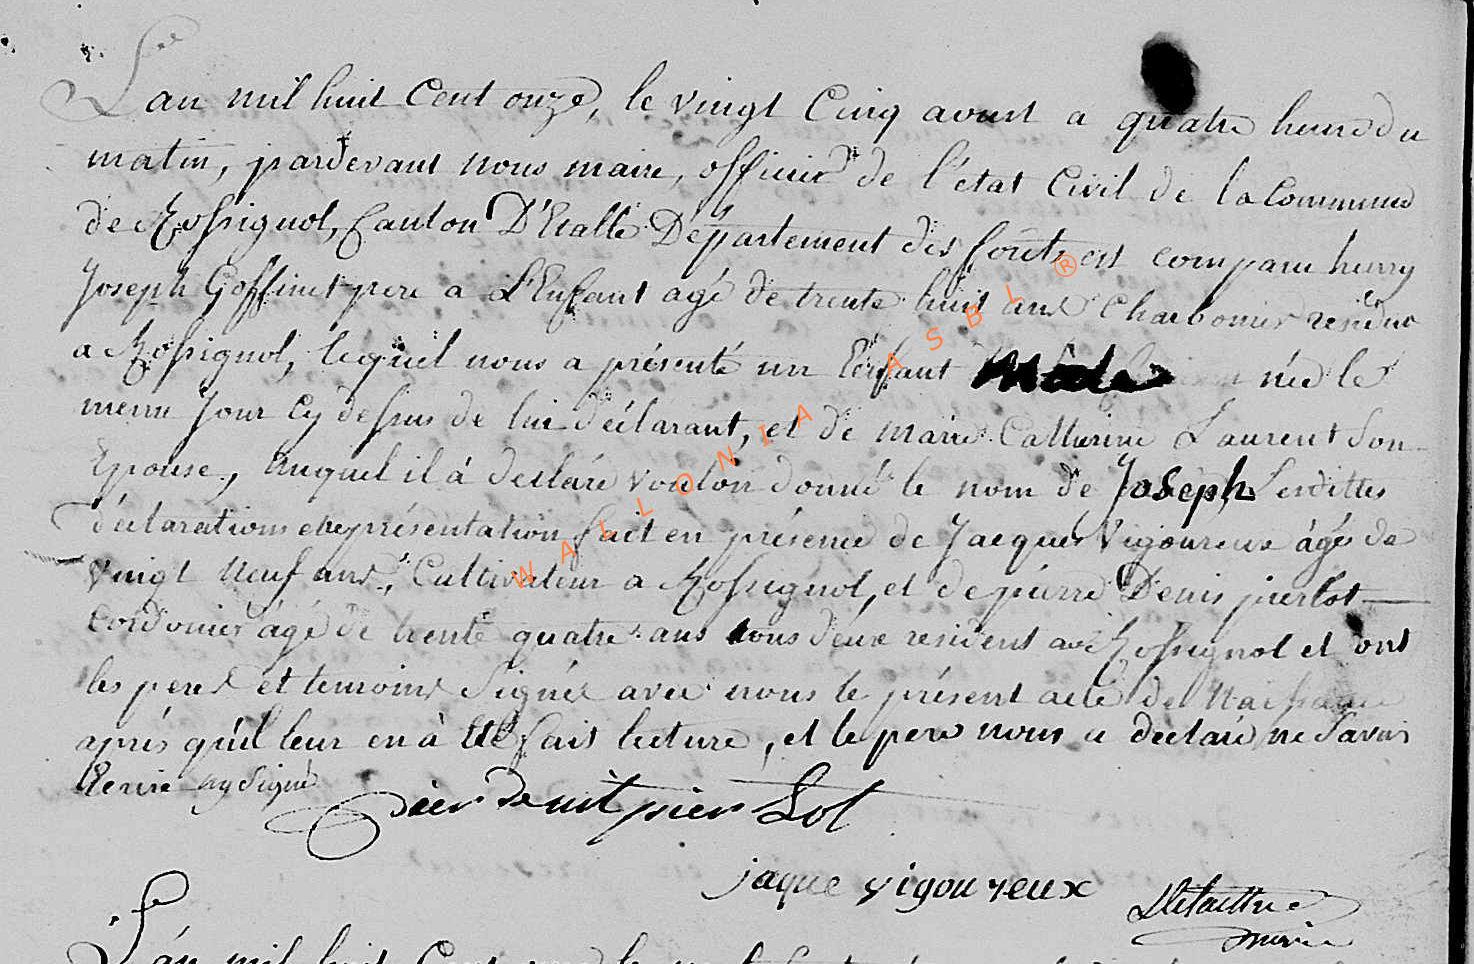 L'an mil huit Cent onze, le vingt Cinq aoust a quatre heure du
matin, pardevant nous maire, officier de l'état Civil de la Commune
de Rossignol, Canton D'Etalle Département des forêts est comparu henry
Joseph Goffinet pere a L'Enfant agé de trente huit ans Charbonier residant
a Rossignol, lequel nous a présenté un Enfant Male née le
meme Jour Cy dessus de lui déclarant, et de marie Catherine Laurent Son
Epouse, Auquel il á declaré vouloir donné le nom de Joseph Lesdittes
déclarations et représentation fait en présence de Jacques Vigoureux âgés de
vingt neuf ans, Cultivateur a Rossignol, et de pierre Denis pierlot
Cordonier âgé de trente quatre ans tous deux resident a Rossignol et ont
les peres et temoins Signés avec nous le présent acte de Naissance
aprés qu'il leur en à été fait lecture, et le pere nous a declaré ne Savoir
Ecrire ny Signé
pier denit pier Lot
jaque vigoureux
maire
L'an mil huit Cent
WALLONIA ASBL ®